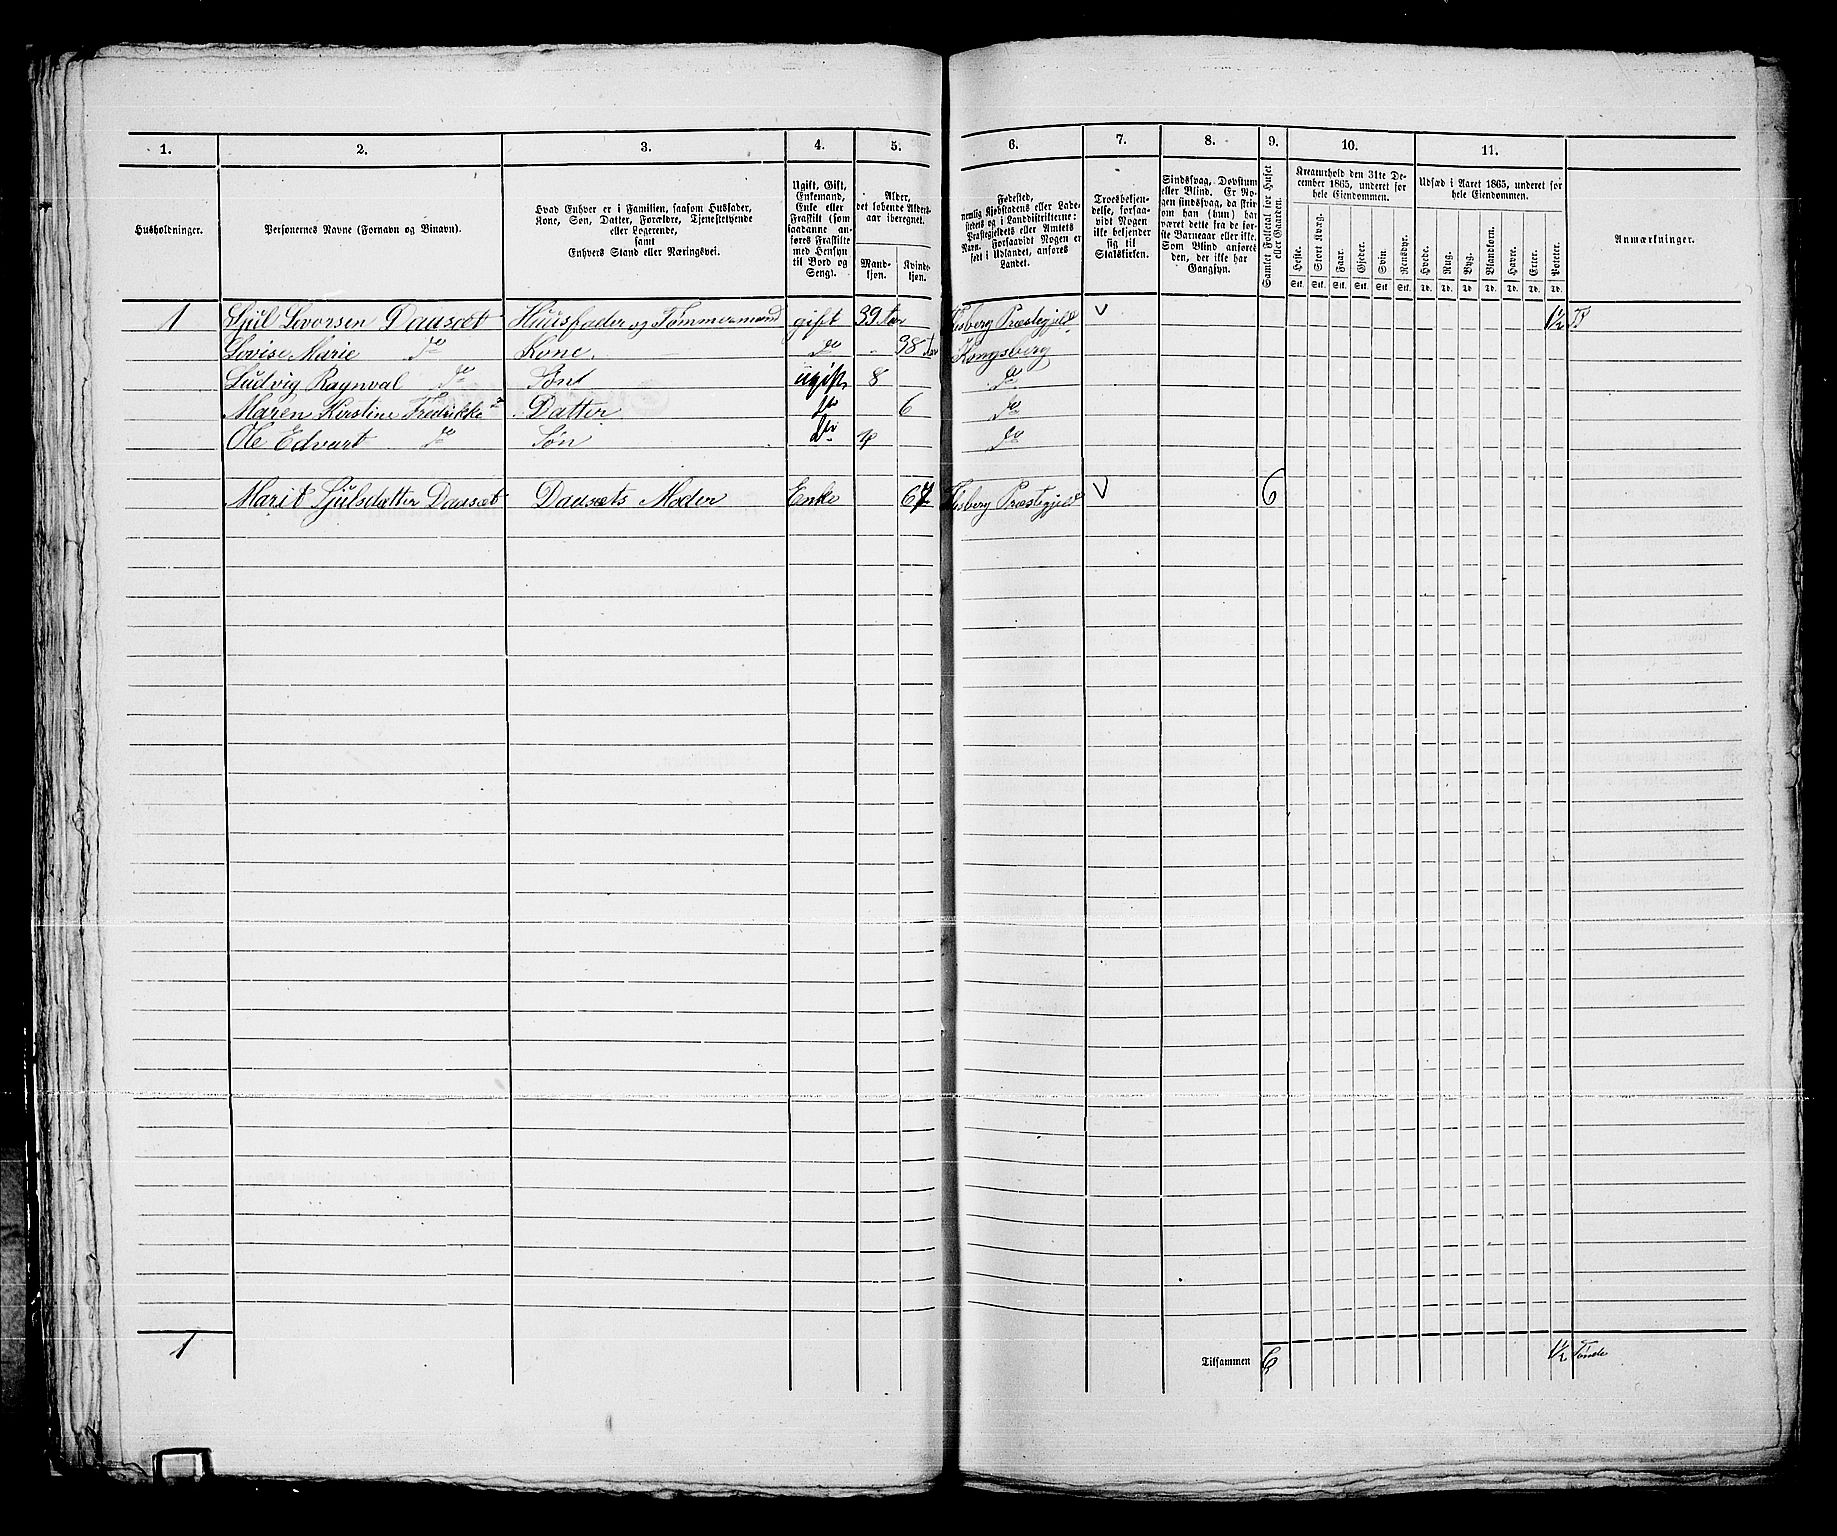 1. 2. 3. 4. 5. 6. 7. 8. 9. 10. 11.
Husholdninger.
Personernes Navne (Fornavn og Binavn).
Hvad Enhver er i Familien, saasom Husfader,
Kone, Søn, Datter, Forældre, Tjenestetyende
eller Logerende,
samt
Enhvers Stand eller Næringsvei.
Ugift, Gift,
Enkemand,
Enke eller
Fraskilt (som
saadanne an-
føres Fraskilte
med Hensyn
til Bord og
Seng).
Alder,
det løbende Alders-
aar iberegnet.
Mand-
kjøn.
Kvind-
kjøn.
Fødested,
nemlig Kjøbstadens eller Lade-
stedets og i Landdistrikterne:
Præstegjeldets eller Amtets
Navn. Forsaavidt Nogen er
født i Udlandet, anføres
Landet.
Troesbekjen-
delse, forsaa-
vidt Nogen
ikke bekjender
sig til
Statskirken.
Sindssvag, Døvstum
eller Blind. Er No-
gen sindssvag, da skri-
ves om han (hun) har
været det fra de før-
ste Barneaar eller ikke.
Som Blind anføres
den, der ikke har
Gangsyn.
Samlet Folketal for Huset
eller Gaarden.
Kreaturhold den 31te De-
cember 1865, underet for
hele Eiendommen.
Heste. Stort Kvæg. Faar. Gjeder. Svin. Rensdyr.
Stk. Stk. Stk. Stk. Stk. Stk.
Udsæd i Aaret 1865, underet for
hele Eiendommen.
Hvede. Rug. Byg. Blandkorn. Havre. Erter. Poteter.
Td. Td. Td. Td. Td. Td. Td.
Anmærkninger.
1 Sjul Levorsen Daasæt Huusfader og Tømmermand gift 39 Flesberg Præstegjeld v 1/2
Lovise Marie do Kone. do 38 Kongsberg
Ludvig Ragnval do Sønt ugift 8 do
Maren Kirstine Fredrikke do Datter do 6 do
Ole Edvart do Søn do 4 do
Marit Sjulsdatter Daasæt Daasæts Moder Enke 67 Flesberg Præstegjeld v 6
1 Tilsammen 6 1/2 Tønde